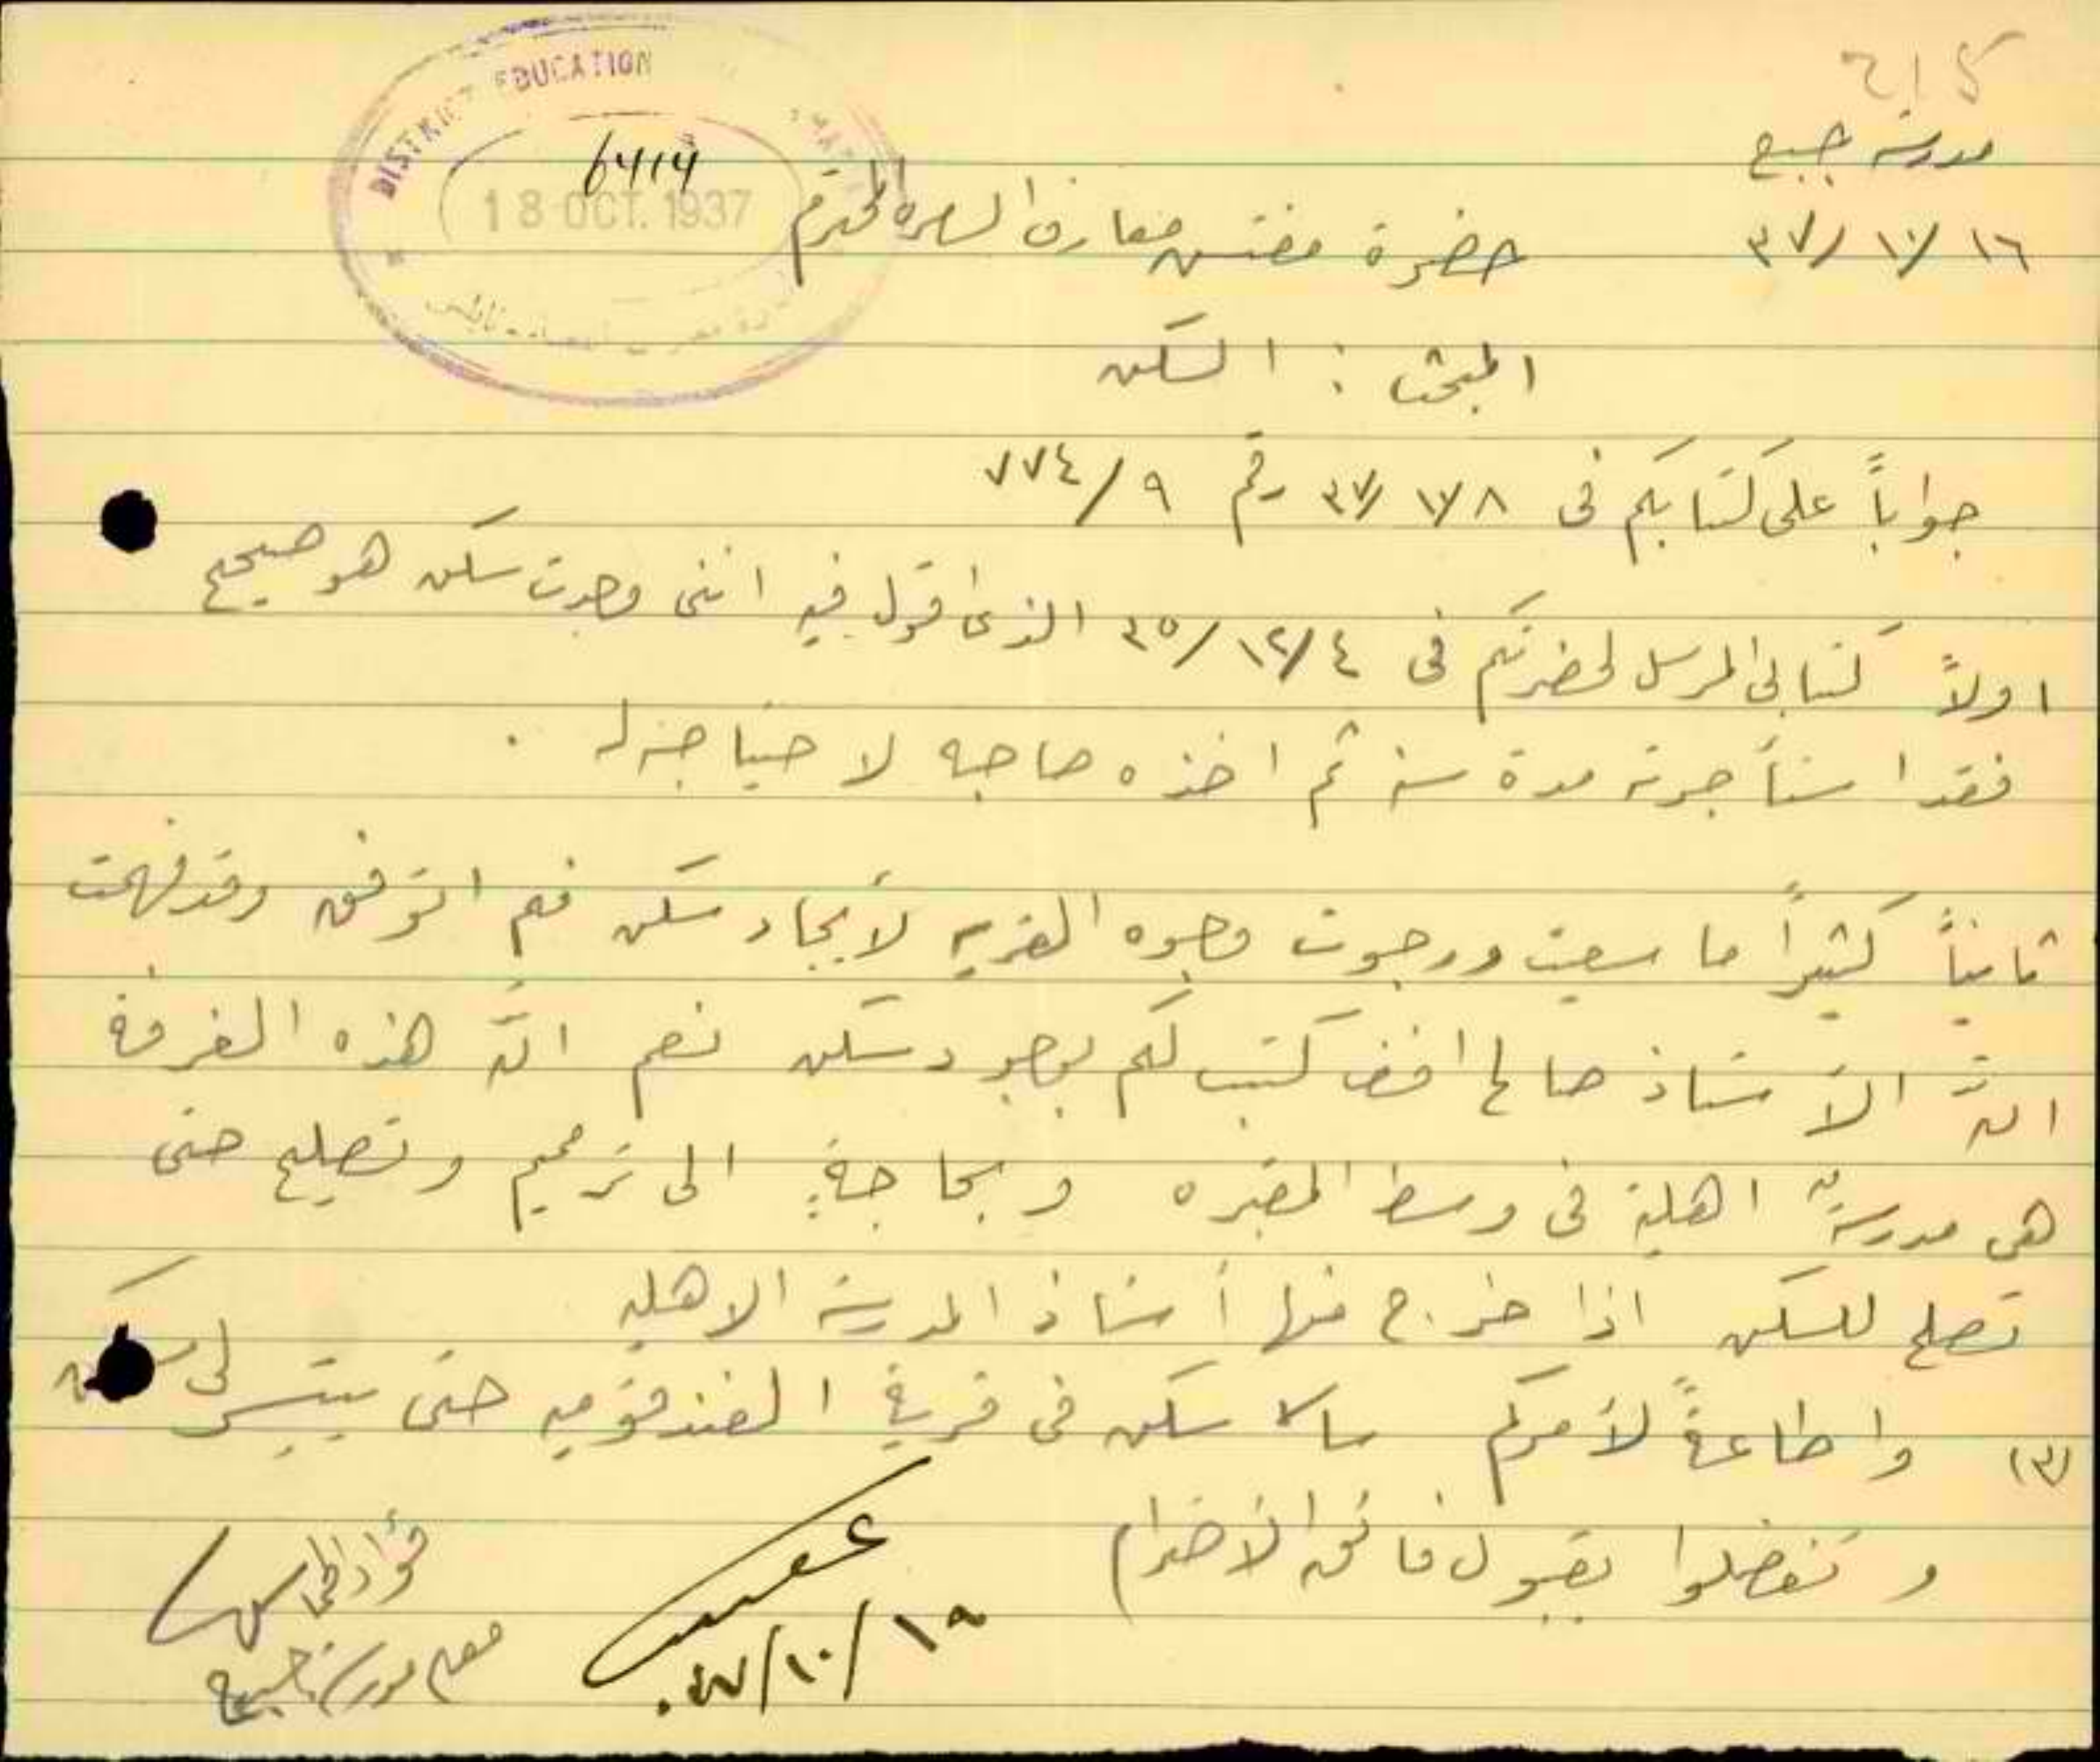 مدرسة جبع
DISTRICT EDUCATION
6414
18 OCT. 1937
١٦/١٠/٣٧
حضرة مفتش معارف السامره المحترم
المبحث : السكن
جواباً على كتابكم في ١٠/٨/٣٧ رقم ٧٧٤/٩
اولاً كتابي المرسل لحضرتكم في ٣٥/١٢/٤ الذي اقول فيه انني وجدت سكن هو صحيح
فقد استأجرته مدة سنة ثم اخذه صاحبه لاحتياجه له .
ثانياً كثيراً ما سعيت ورجوت وجوه القريه لأيجاد سكن فلم اتوفق وقد فهمت
انّ الأستاذ صالح افندي كتب لكم بوجود سكن نعم انّ هذه الغرفة
هي مدرسةٌ اهلية في وسط المقبره وبحاجةٍ الى ترميم وتصليح حتى
تصلح للسكن اذا خرج منها أستاذ المدرسة الاهليه
(٣) واطاعةً لأمركم سأسكن في قرية الفندقوميه حتى يتيسر لي سكن
وتفضلوا بقبول فائق الاحترام
فؤاد
معلم مدرسة جبع
١٨/١٠/٣٧